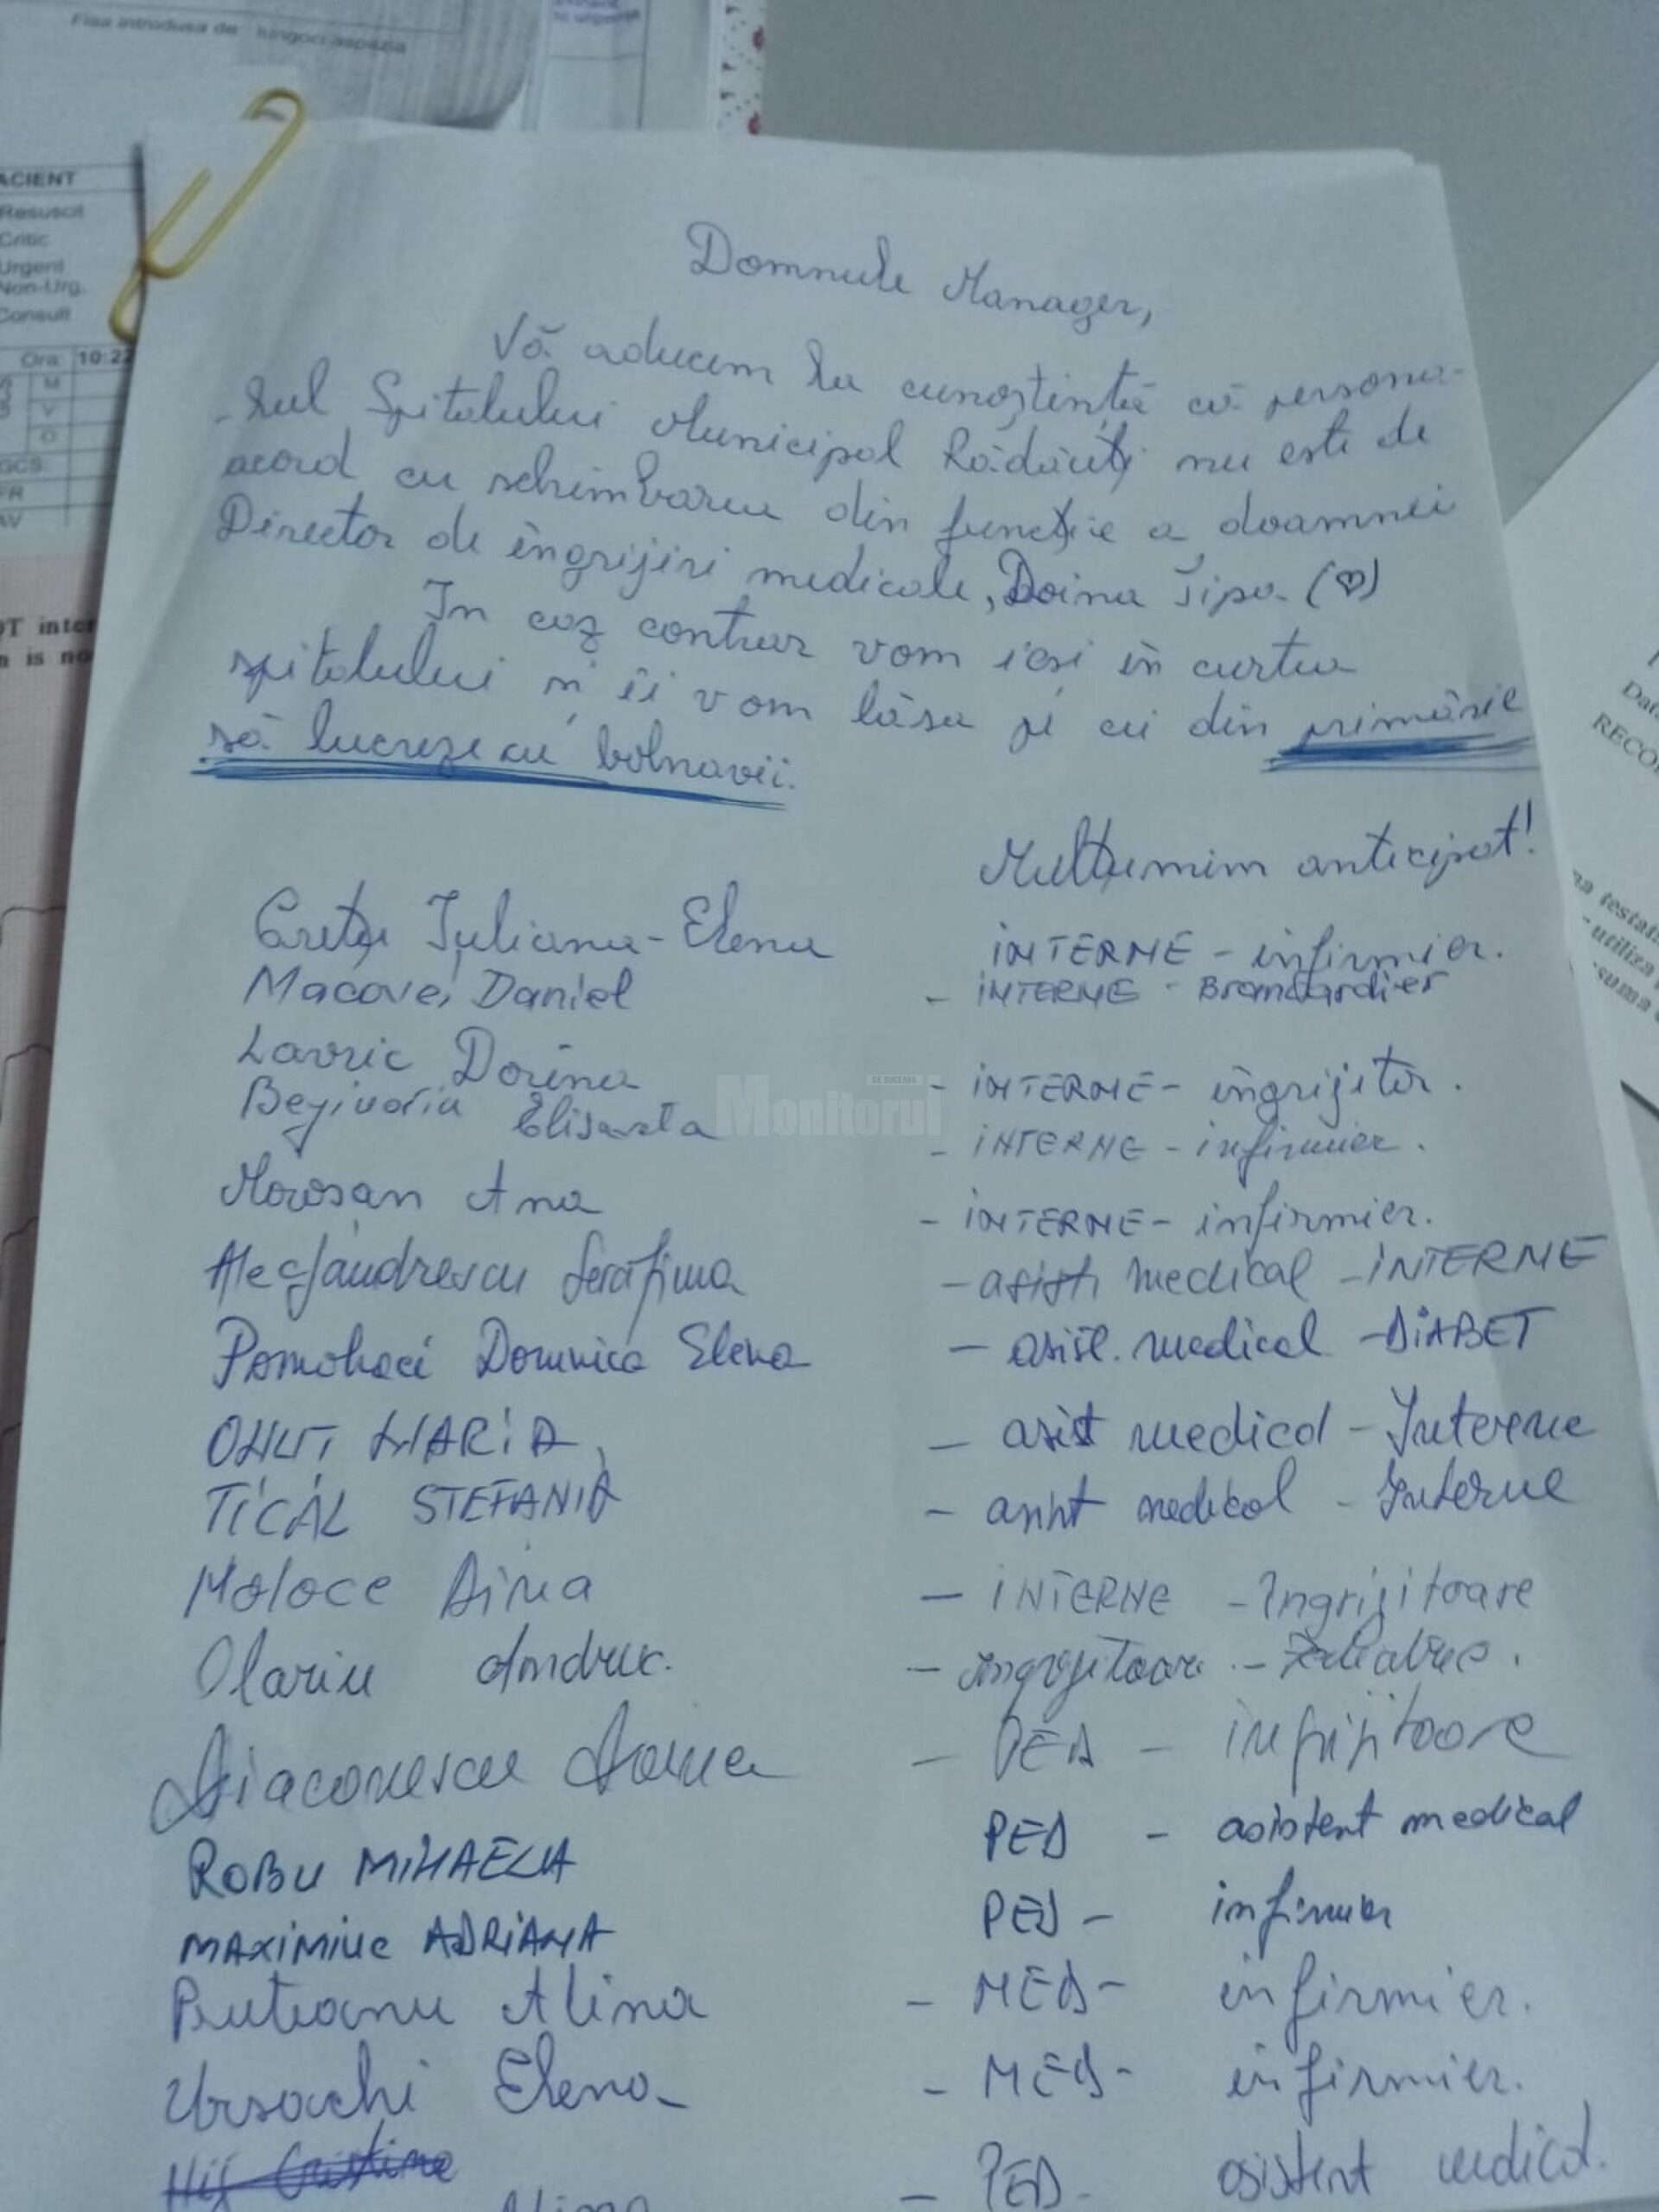 Fisa introdusa de: lungoci aspazia
ACIENT
Resuscit
Critic
Urgent
Non-Urg.
Consult
Ora: 10:22
M
V
O
GCS:
FR
AV
OT inter
n is no
Domnule Manager,
Vă aducem la cunoștință că persona-
-lul Spitalului Municipal Rădăuți nu este de
acord cu schimbarea din funcție a doamnei
Director de îngrijiri medicale, Doina Țipa. (♡)
In caz contrar vom iesi în curtea
spitalului și îi vom lăsa pe cei din primărie
să lucreze cu bolnavii.
Mulțumim anticipat!
Crețu Iuliana-Elena INTERNE - infirmier.
Macovei Daniel - INTERNE - Brancardier
Lavric Dorina - INTERNE - îngrijitor.
Elisaveta - INTERNE - infirmier.
Moroșan Ana - INTERNE - infirmier.
Serafima - medical - INTERNE
Pomohaci Domnica Elena - asist. medical - DIABET
MARIA - asist medical - Interne
TICAL STEFANIA - asist medical - Interne
Moloce Dina - INTERNE - Ingrijitoare
Olariu - -
Diaconescu - PED - ingrijitoare
ROBU MIHAELA PED - asistent medical
MAXIMIUC ADRIANA PED - infirmier
Buteanu Alina - MED - infirmier.
Ursachi Elena - MED - infirmier.
Cristina - PED - asistent medical.
Alina
Monitorul
DE SUCEAVA
Data
RECO
na testata
- utiliza
suma